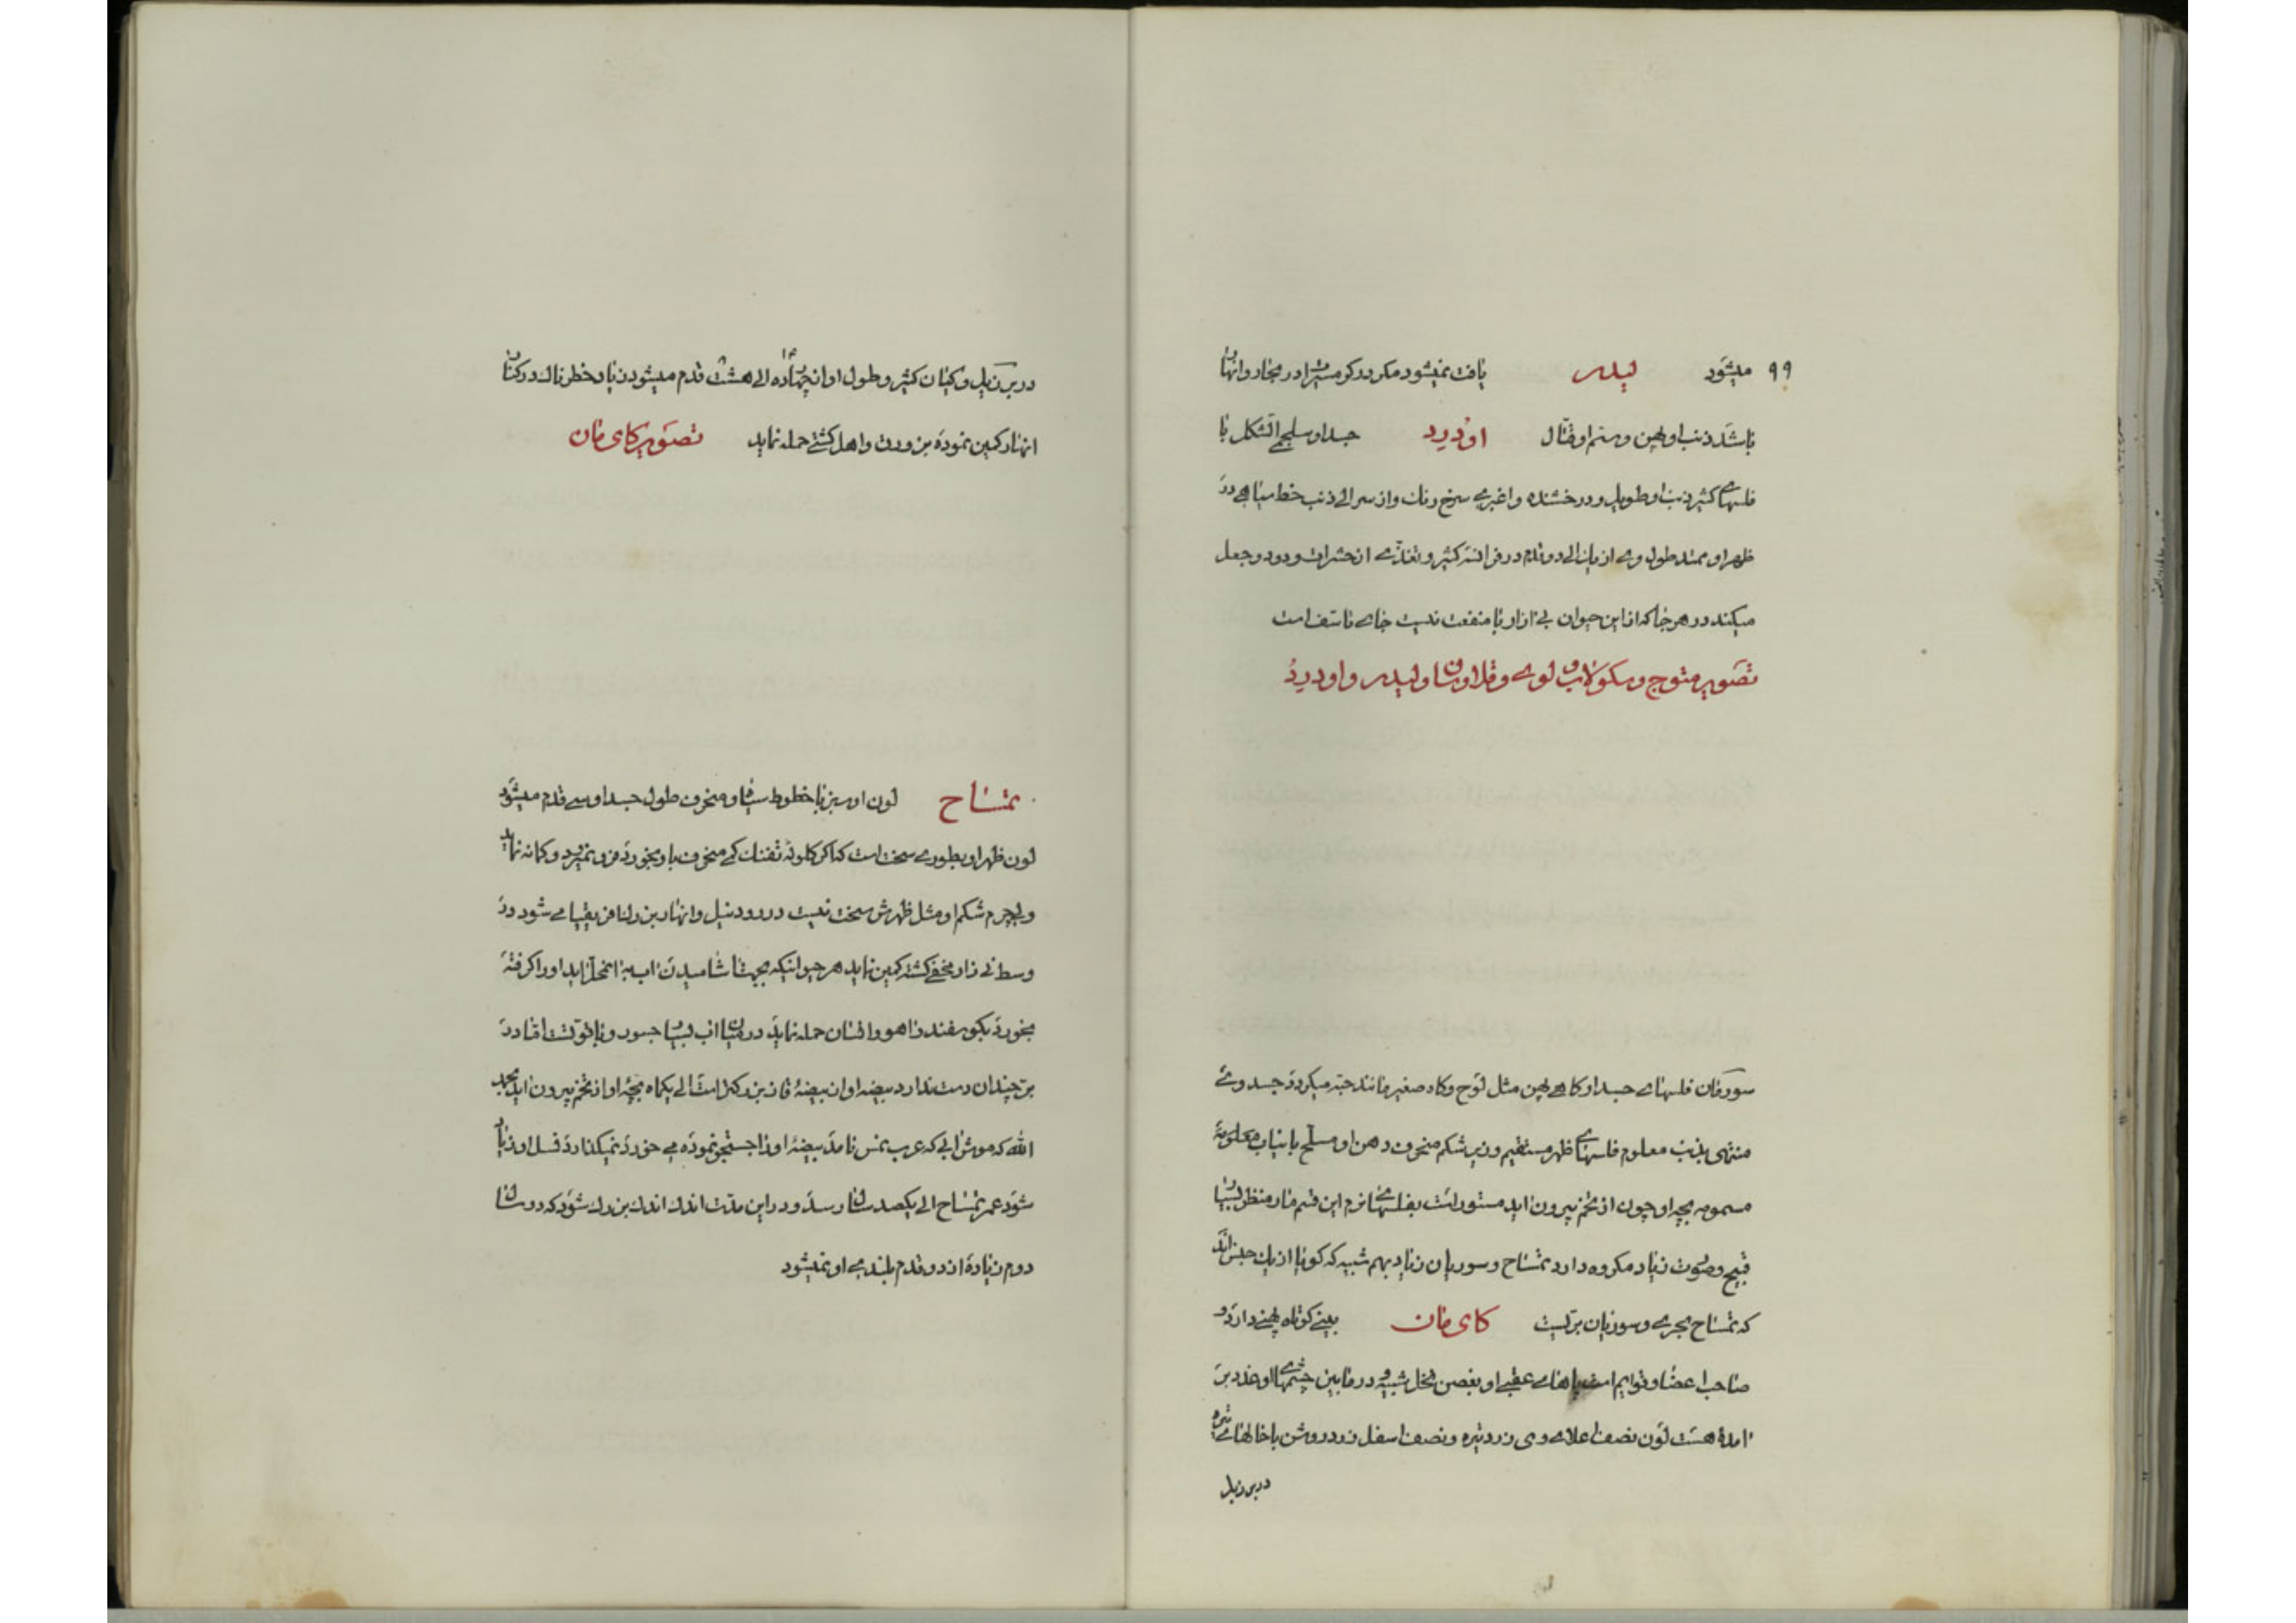 ۹۹ میشود لیدر یافت نمیشود مکر در کرمسیر در بخار و انهار
باشد ذنب او پهن و سم او قتال اودرد جسد او سلجمی الشکل با
فلسهای کثیر ذنب او طویل و درخشنده و اغبری سرخ رنک و از سر الی ذنب خط سیاهی در
ظهر او ممتد طول وی از یک الی دو قدم در فرانسه کثیر و تغذی از حشرات و دود و جعل
میکند در هر جا که از این حیوان بی ازار با منفعت نیست جای تاسف است
تصویر متوج و سکولاب لوی و قلاوسان و لیدر و اودرد
سورفان فلسهای جسد او کاهی پهن مثل لوح و کاه صغیر مانند حبه میکردد جسد وی
منتهی بذنب معلوم فلسهای ظهر مستقیم و زیر شکم منحرف دهن او مسلح بانیاب مملو به
سموم بچه او چون از تخم بیرون اید مستور است بفلسهای نرم این قسم مار منظر بسیار
قبیح و صوت زیاد مکروه دارد تمساح و سوریان زیاد بهم شبیه که کویا از یک جنس اند
که تمساح بحری و سوریان بریست کای مان بینی کوتاه پهنی دارد و
صاحب اعضا و قوایم است پاهای عقبی او بغصن نخل شبیه و در مابین چشمهای او غدد بر
امده هست لون نصف اعلای وی زرد تیره و نصف اسفل زرد روشن با خالهای تیره
در برزیل
در برزیل و کیان کثیر و طول او از چهارده الی هشت قدم میشود زیاد خطرناک در کنار
انهار کمین نموده بزورق و اهل کشتی حمله نماید تصویر کای مان
تمساح لون او سبز با خطوط سیاه و منحرف طول جسد او سی قدم میشود
لون ظهر او بطوری سخت است که اکر کلوله تفنک کی منحرف باو بخورد فرو نمیرود و کمانه نماید
ولی چرم شکم او مثل ظهرش سخت نیست در رود نیل و انهار بزرک افریقیا می شود در
وسط نی زار مخفی کشته کمین نماید هر حیوانیکه بجهت اشامیدن اب به انمحل اید او را کرفته
بخورد بکوسفند و اهو و انسان حمله نماید در میان اب بسیار جسور و با قوتست اما در
بر چندان دست ندارد بیضه او از بیضهٔ قاز بزرکتر است الی یکماه بچهٔ او از تخم بیرون اید بحمد
الله که موش ابی که عرب نمس نامد بیضهٔ او را جستجو نموده می خورد نمیکذارد نسل او زیاد
شود عمر تمساح الی یکصد سال رسد و در این مدت اندک اندک بزرک شود که در سال
دوم زیاده از دو قدم بلندی او نمیشود